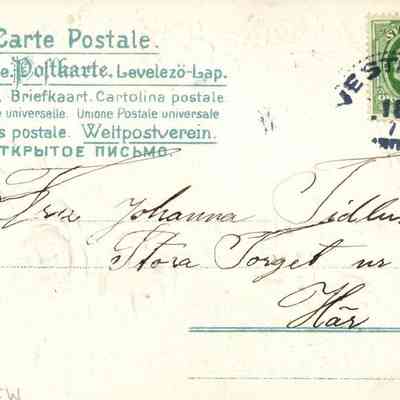 Carte Postale.
e. Postkarte. Levelezö-Lap.
Briefkaart. Cartolina postale
e universelle. Unione Postale universale
s postale. Weltpostverein.
ТКРЫТОЕ ПИСЬМО.
VEST
Fru Johanna Tidlu
Stora Torget nr
Här